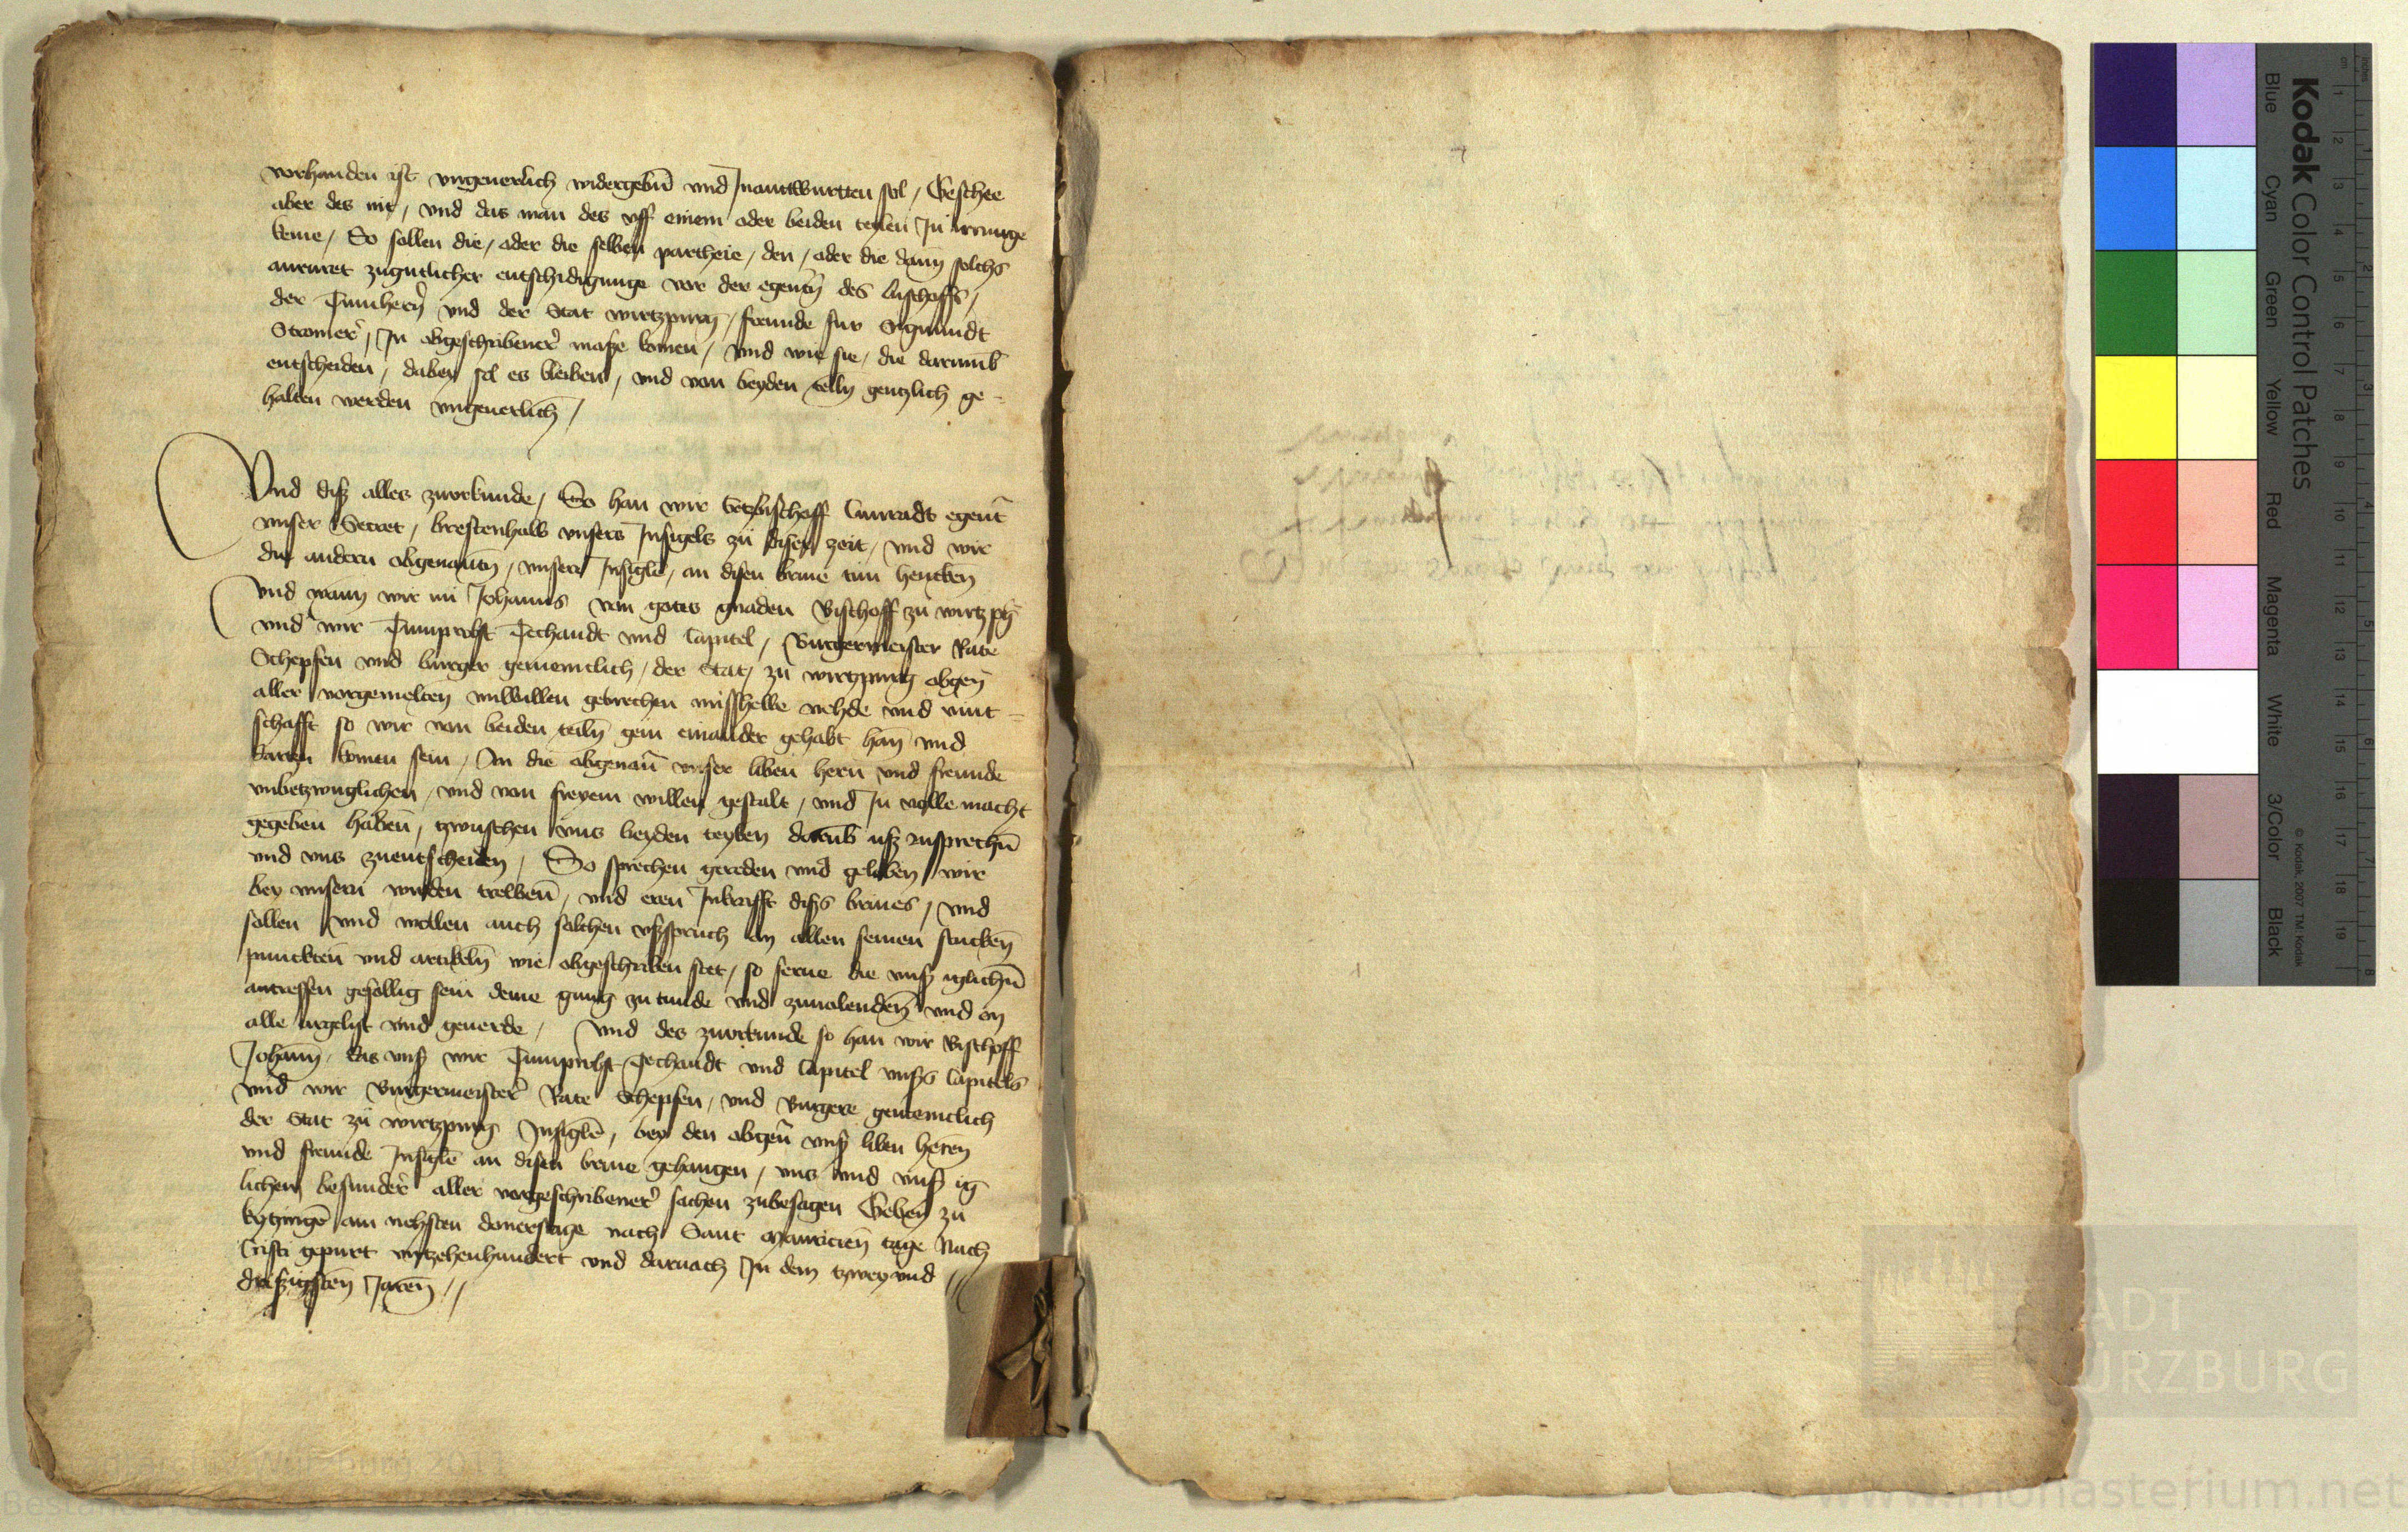 vorhanden ist vngeuerlich widergebn̄ vnd Inantwurtten sol / Geschee
aber des nit / vnd das man des vff einem oder beiden teylen In irrunge
keme / So sollen die / oder die selben partheie / den / oder die dann solchs
anruret zugutlicher entschidigunge vor der egentn̄ des bischoffs /
der Tumhern̄ vnd der Stat wirtzpurg / freunde fur Sigmundt
Stromer / In obgeschribener maße komen / vnd wie sie / die darumb
entscheiden / dabey sol es bleiben / vnd von beyden telln gentzlich ge-
halten werden vngeuerlich /
Vnd diß alles zuorkunde / So han wir Ertzbischoff Cunradt egent̄
vnser Secret / brestenhalb vnsers Insigels zu diser zeit / vnd wir
die andern obgenantn̄ / vnsere Insigle / an disen brine tun hencken
Vnd wann wir nu Johanns von gotes gnaden Bischoff zu wirtzpḡ
vnd wir Tumprobst Techandt vnd Capitel / Burgermeister Rate
Schepfen vnd burger gemeintlich / der Stat / zu wirtzpurg obgen̄
aller vorgemelten vnwillen gebrechen misshelle vehde vnd vint-
schafft so wir von beiden teiln̄ gein einander gehabt han̄ vnd
komen sein / An die obgenan̄ vnser liben hern vnd freunde
vnbetzwuglichen / vnd von freyem willen gestalt / vnd In volle macht
gegeben haben̄ / tzwuschen vns beyden teylen darub̄ uß zusprechn̄
vnd vns zuentscheiden / So sprechen gereden vnd geloben wir
bey vnsern wirden trewen̄ / vnd eren Inkrafft diß brines / vnd
sollen vnd wollen auch solchen vßspruch an allen seinen stucken̄
punckten̄ vnd artikeln̄ wie obgeschriben stet / so ferne die vnß iglichn̄
antreffen gefollig sein deme gnug zu tunde vnd zuuolenden̄ vnd on
alle argelist vnd geuerde / Vnd des zuorkunde so han wir Bischoff
Johann̄ / das vnß wir Tumprobst Techandt vnd Capitel vnßs Capitels
vnd wir Burgermeister Rate Schepfen / vnd Burgere gemeintlich
der Stat zu wirtzpurg Insigle / bey den obgen̄ vnß liben heren̄
vnd freunde Insigle an disen brine gehangen / vns vnd vnß ig
lichen besunder aller vorgeschribener sachen zubesagen Geben zu
kytzinge am nehsten donerstage nach Sant Mauricien̄ tage Nach
Cristi gepurt virtzehenhundert vnd darnach In dem tzwey vnd //
dreßigsten̄ Jaren̄ //
Kodak Color Control Patches
Blue Cyan Green Yellow Red Magenta White 3/Color Black
© Kodak, 2007 TM: Kodak
STADT
WÜRZBURG
www.monasterium.net